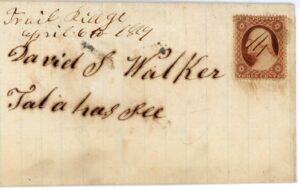 Trail Ridge
April 6th 1859
David S Walker
Talahassee
THREE CENTS